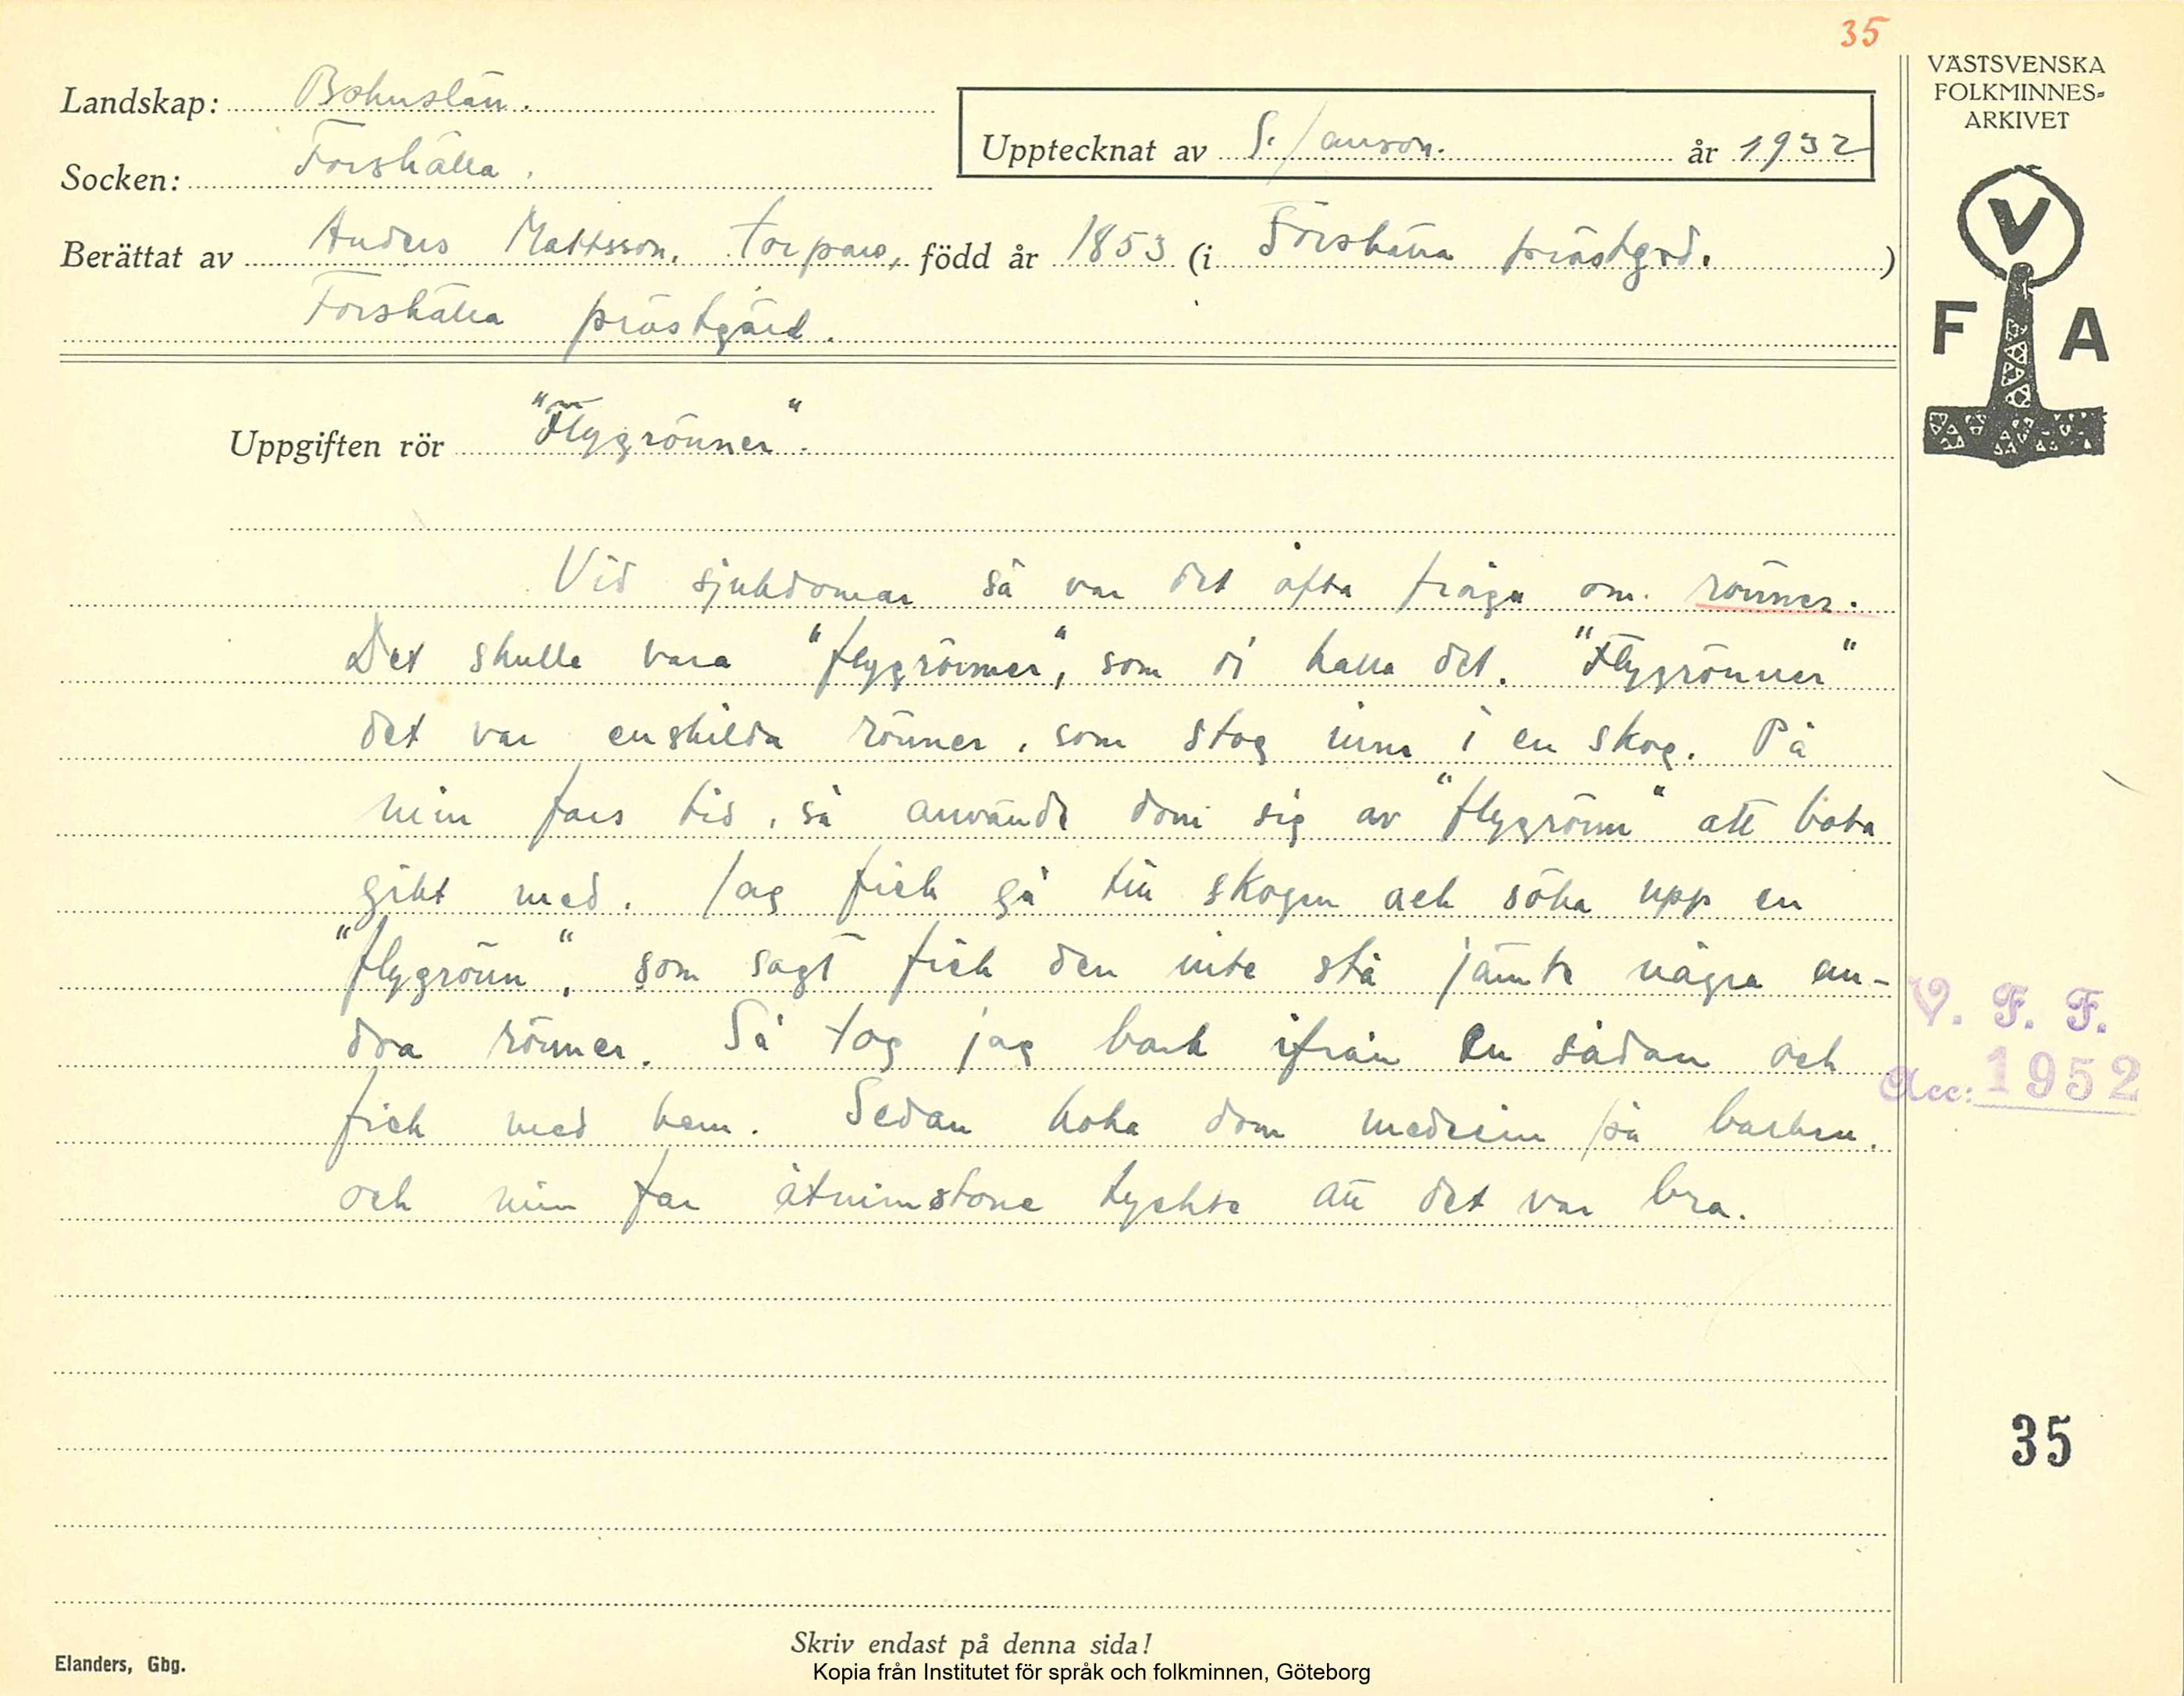 35
Landskap: Bohuslän.
VÄSTSVENSKA
FOLKMINNES-
ARKIVET
Upptecknat av S. Janson. år 1932
Socken: Forshälla.
Berättat av Anders Mattsson, torpare, född år 1853 (i Forshälla prästgrd.)
Forshälla prästgård.
V
F A
Uppgiften rör "Flygrönner".
Vid sjukdomar så var det ofta fråga om rönner.
Det skulle vara "flygrönner", som di kalla det. "Flygrönner"
det var enskilda rönner, som stog inne i en skog. På
min fars tid, så använde dom sig av "flygrönn" att bota
gikt med. Jag fick gå till skogen och söka upp en
"flygrönn", som sagt fick den inte stå jämte några an-
dra rönner. Så tog jag bark ifrån en sådan och
fick med hem. Sedan koka dom medecin på barken.
och min far åtminstone tyckte att det var bra.
V. F. F.
Acc: 1952
35
Skriv endast på denna sida!
Elanders, Gbg.
Kopia från Institutet för språk och folkminnen, Göteborg